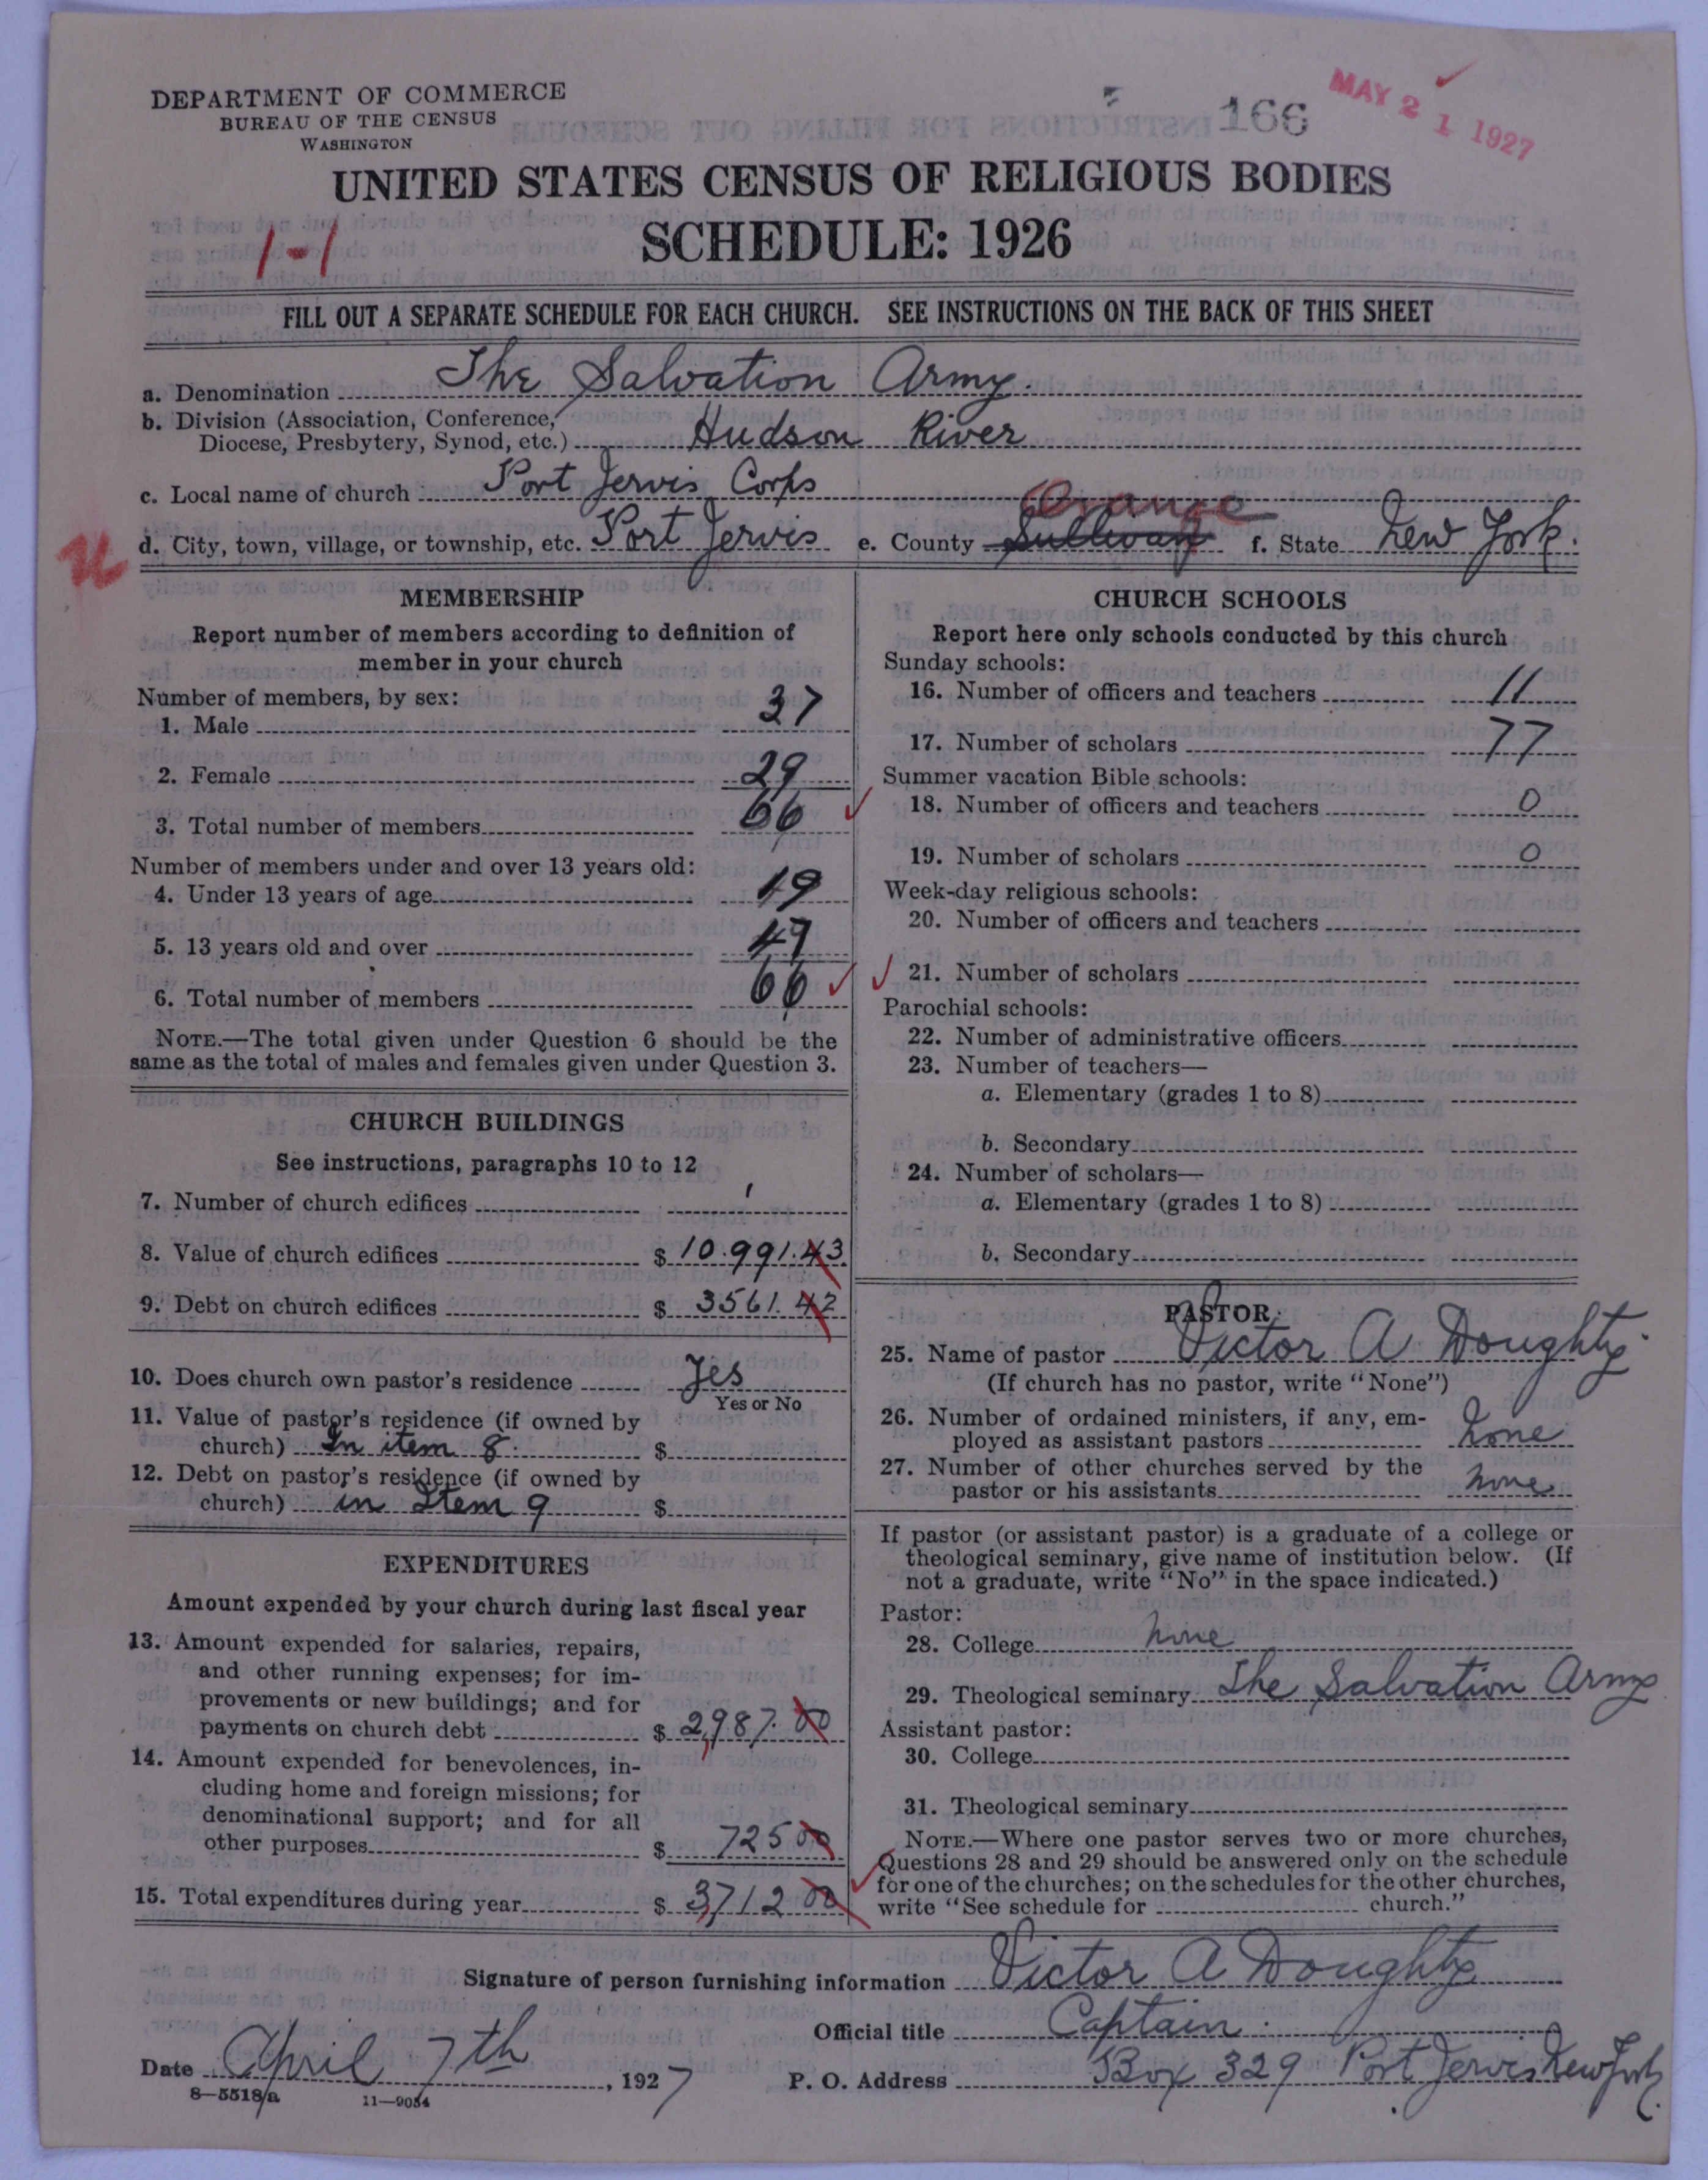 DEPARTMENT OF COMMERCE
BUREAU OF THE CENSUS
WASHINGTON
166
MAY 21 1927
UNITED STATES CENSUS OF RELIGIOUS BODIES
SCHEDULE: 1926
1-1
FILL OUT A SEPARATE SCHEDULE FOR EACH CHURCH. SEE INSTRUCTIONS ON THE BACK OF THIS SHEET
a. Denomination The Salvation Army.
b. Division (Association, Conference,
Diocese, Presbytery, Synod, etc.) Hudson River
c. Local name of church Port Jervis Corps
d. City, town, village, or township, etc. Port Jervis e. County Sullivan Orange f. State New York.
MEMBERSHIP
Report number of members according to definition of
member in your church
Number of members, by sex:
1. Male 37
2. Female 29
3. Total number of members 66
Number of members under and over 13 years old:
4. Under 13 years of age 19
5. 13 years old and over 47
6. Total number of members 66
NOTE.—The total given under Question 6 should be the
same as the total of males and females given under Question 3.
CHURCH BUILDINGS
See instructions, paragraphs 10 to 12
7. Number of church edifices 1
8. Value of church edifices $ 10.991.43
9. Debt on church edifices $ 3561.42
10. Does church own pastor's residence Yes
Yes or No
11. Value of pastor's residence (if owned by
church) In item 8. $
12. Debt on pastor's residence (if owned by
church) in Item 9 $
EXPENDITURES
Amount expended by your church during last fiscal year
13. Amount expended for salaries, repairs,
and other running expenses; for im-
provements or new buildings; and for
payments on church debt $ 2,987.00
14. Amount expended for benevolences, in-
cluding home and foreign missions; for
denominational support; and for all
other purposes $ 725 00
15. Total expenditures during year $ 3,712 00
CHURCH SCHOOLS
Report here only schools conducted by this church
Sunday schools:
16. Number of officers and teachers 11
17. Number of scholars 77
Summer vacation Bible schools:
18. Number of officers and teachers 0
19. Number of scholars 0
Week-day religious schools:
20. Number of officers and teachers
21. Number of scholars
Parochial schools:
22. Number of administrative officers
23. Number of teachers—
a. Elementary (grades 1 to 8)
b. Secondary
24. Number of scholars—
a. Elementary (grades 1 to 8)
b. Secondary
PASTOR
25. Name of pastor Victor A Doughty.
(If church has no pastor, write "None")
26. Number of ordained ministers, if any, em-
ployed as assistant pastors None
27. Number of other churches served by the
pastor or his assistants none
If pastor (or assistant pastor) is a graduate of a college or
theological seminary, give name of institution below. (If
not a graduate, write "No" in the space indicated.)
Pastor:
28. College none
29. Theological seminary The Salvation Army
Assistant pastor:
30. College
31. Theological seminary
NOTE.—Where one pastor serves two or more churches,
Questions 28 and 29 should be answered only on the schedule
for one of the churches; on the schedules for the other churches,
write "See schedule for church."
Signature of person furnishing information Victor A Doughty
Official title Captain.
Date April 7th, 1927 P. O. Address Box 329 Port Jervis New York.
8—5518a 11—9034